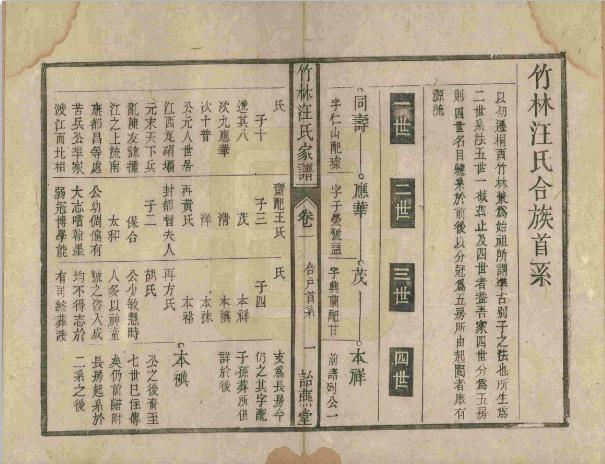 竹林汪氏合族首系
以初遷桐西竹林爲始祖所謂準古別子之法也所生爲
二世系法五世一截茲止及四世者蓋吾家四世分爲五房
則四世名目總系於前後以分冠爲五房所由起閱者庶有
源流
一世
二世
三世
四世
同壽
應華
茂
本祥
字仁山配璩
字子榮號誼
字興蘭配甘
前譜列公一
竹林汪氏家譜
卷一
合戶首系
一
詒燕堂
氏
子十
逸其八
次九應華
次十普
公元人世居
江西瓦硝壩
元末天下兵
亂陳友諒據
江之上流南
康都昌等處
苦兵公挈家
渡江而北相
齋配王氏
子三
茂
清
洋
再黃氏
封都督夫人
子二
保合
太和
公幼倜儻有
大志嗜翰墨
弱冠博學能
氏
子四
本祥
本禩
本沫
本裕
再方氏
胡氏
公少敏慧時
人多以神童
號之咨入成
均不得志於
有司終葬濊
支爲長房今
仍之其字配
子孫葬所俱
詳於後
本禩
公之後齊至
七世巳住傳
矣仍前譜附
長房起系於
二系之後